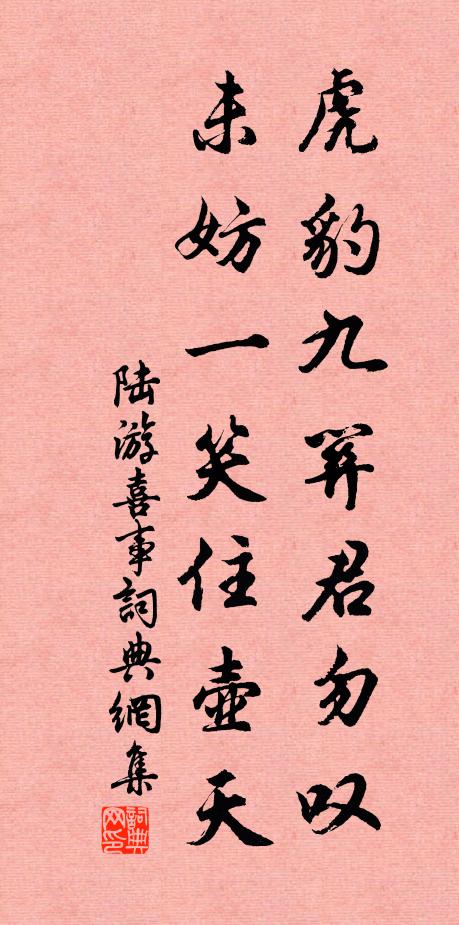 虎豹九关君勿叹
未妨一笑住壶天
陆游喜事詞典網集
詞典網印